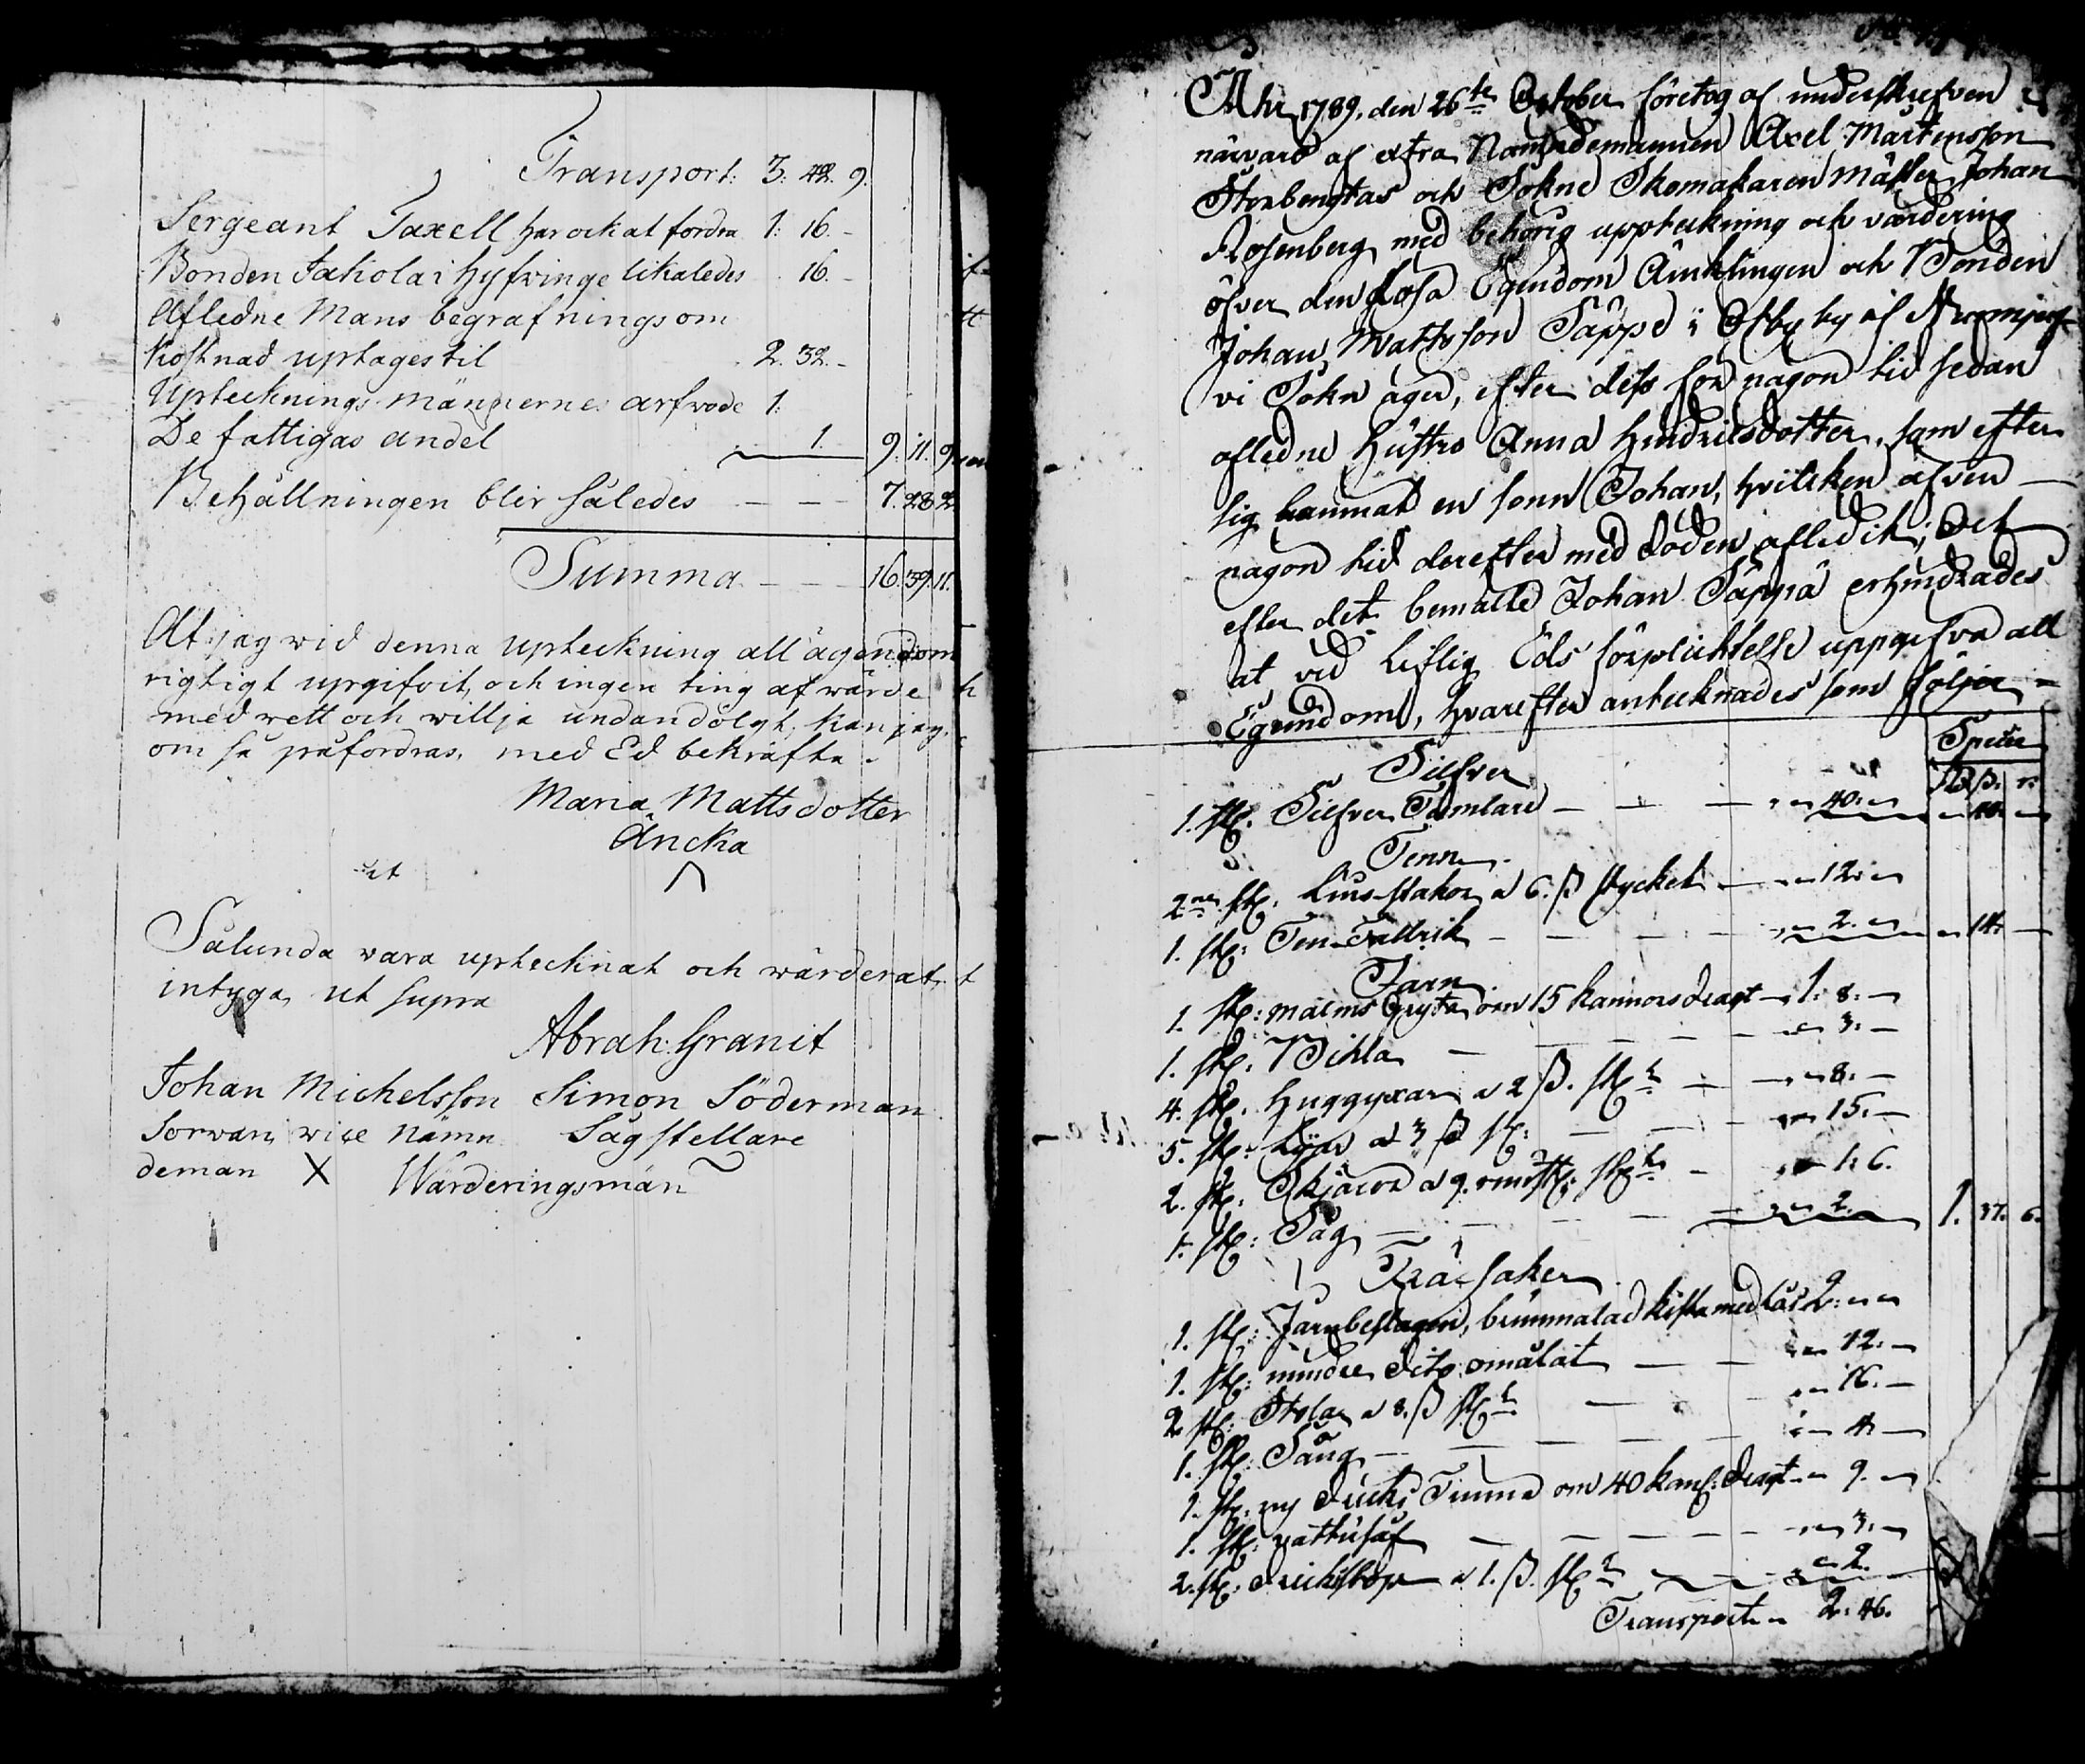 Transport: 3. 42. 9.
Sergeant Taxell har ock at fordra 1: 16.-
Bonden Jakola i Hyfvinge likaledes . 16.-
Afledne Mans begrafnings om
kostnad uptages til 2. 32.-
Upteknings männernes arfvode 1.
De fattigas andel 1. 9. 11. 9
Behållningen blir således - - - 7. 28. 2
Summa - - - 16. 39. 11.
At jag wid denna upteckning all ägendom
rigtigt upgifvit, och ingen ting af wärde
med wett och willja undandölgt, kan jag,
om så påfordras, med Ed bekräfta.
Maria Mattsdotter
Äncka
Sålunda vara uptecknat och wärderat,
intyga, ut supra
Abrah: Granit
Johan Michelsson Simon Söderman
Sorvari, vice Nämn Sågställare
deman X Wärderingsmän
Åhr 1789. den 26te October företog af underskrefven
närvaro af extra Nämndemannen Axel Mårtensson
Storbengtas och Sokne Skomakaren Mäster Johan
Rosenberg med behörig uppteckning och värdering
öfver den lösa Egendom Änklingen och Bonden
Johan Mattsson Säppä i by af
vi Sokn äger, efter dess för någon tid sedan
afledne hustro Anna Hindricsdotter, som efter
sig lämnat en sonn Johan, hvilcken äfven
någon tid derefter med döden afledit; Och
efter det bemälte Johan Säppä erhindrades
at vid liflig Eds förplicktelse uppgifva all
Egendom, hvarefter anteknades som följer
Specie
Rd ß. r.
Silfver
1. st. Silfver Tumlare - - - 40. - 40. -
Tenn
2ne st. Liusstakar a 6. ß stycket - 12. -
1. st: Tenn Talrik - - - 2. - 14. -
Jarn
1. st: malms Gryta om 15 kannors dragt - 1: 8. -
1. st. Bihla - - - 3. -
4. st. Huggyxar a 2 ß. st. - 8. -
5. st. Lijar a 3 ß st: - 15. -
2. st. Skjäror a 9. rundst: st. - 1: 6.
1. st: Såg - - - 2. 1. 37. 6.
Träsaker
1. st: Jarnbeslagen, brunmålad kista med lås 2: -
1. st: mindre dito omålat - 12. -
2 st: Stolar a 8. ß st. - 16. -
1. st: Säng - - 4. -
1. st: ny dricks Tunna om 40 kans: dragt - 9. -
1. st: vattusåf - - 3. -
2. st: drickstop a 1. ß. st. - 2.
Transport - 2: 46.